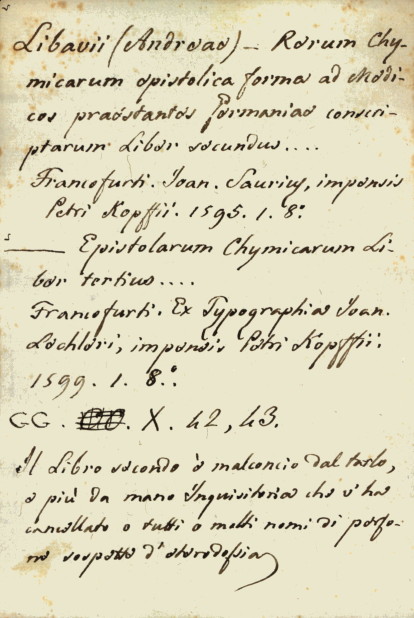 Libavii (Andreae) — Rerum Chy-
micarum epistolica forma ad Medi-
cos praestantes Germaniae conscri-
ptarum Liber secundus....
Francofurti. Joan. Saurius, impensis
Petri Kopffii. 1595. 1. 8.º
——— Epistolarum Chymicarum Li-
ber tertius....
Francofurti. Ex Typographia Joan.
Lechleri, impensis Petri Kopffii.
1599. 1. 8.º
GG. X. 42, 43.
Il Libro secondo è malconcio dal tarlo,
e più da mano Inquisitoria che v'ha
cancellato o tutti o molti nomi di perso-
ne sospette d'eterodossia